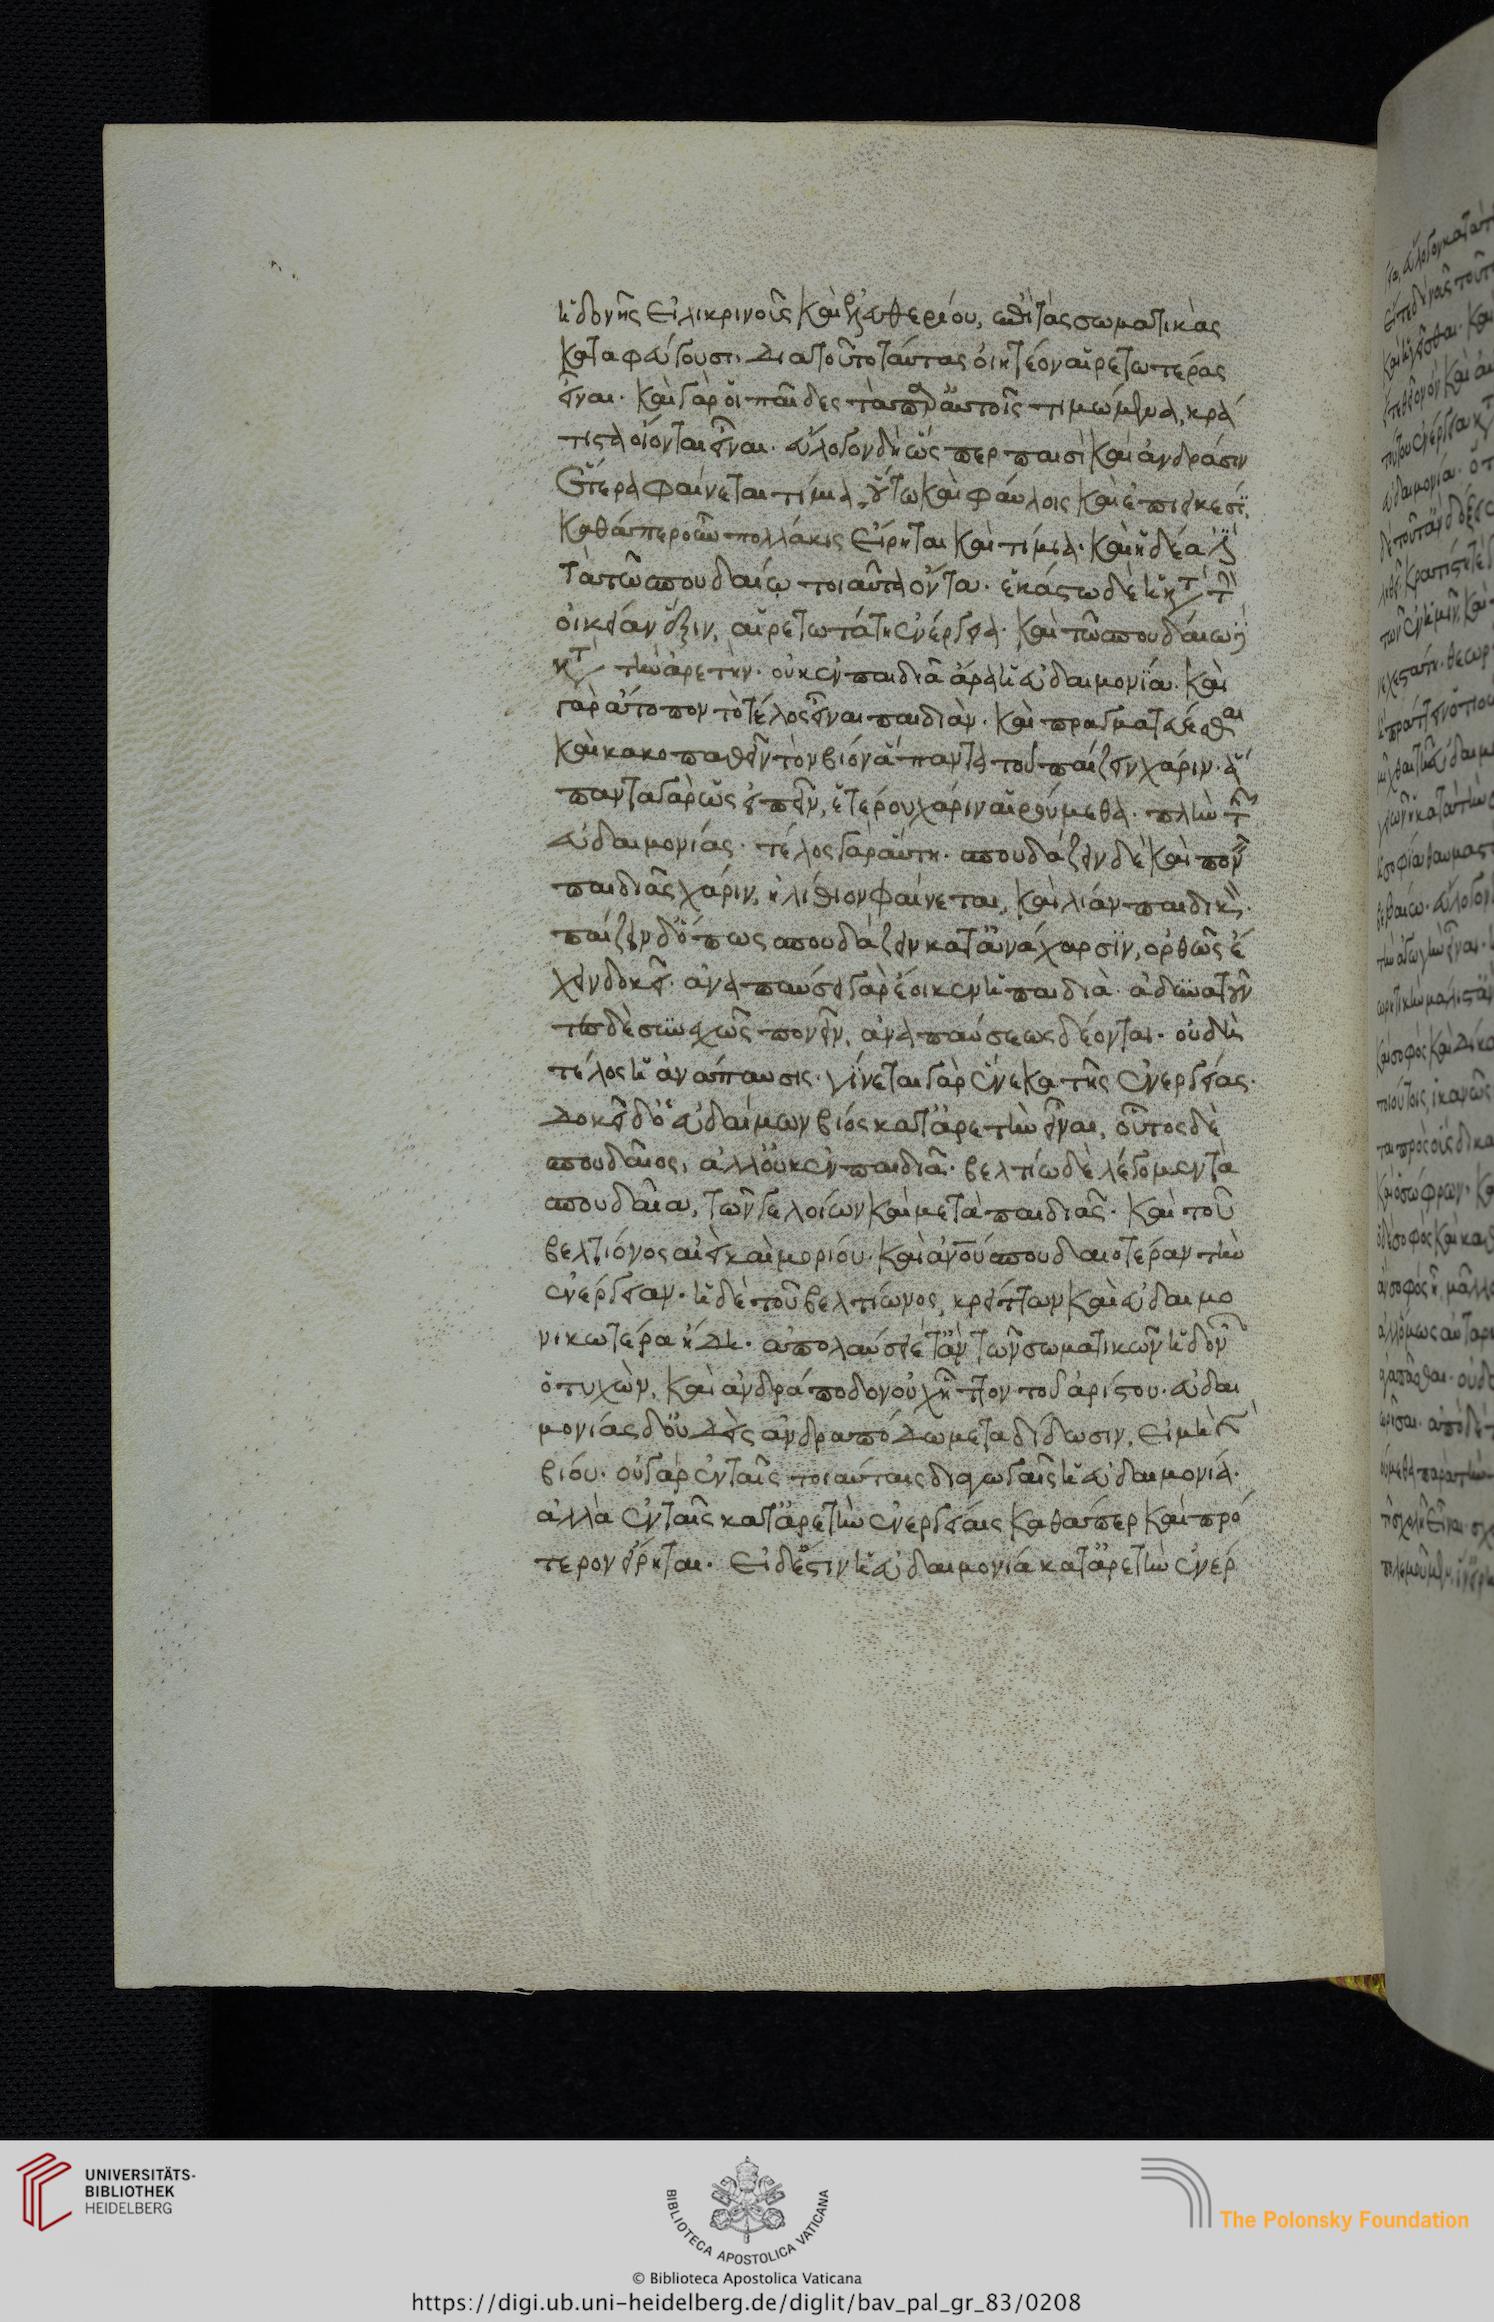 ἡδονῆς εἰλικρινοῦς καὶ ἐλευθερίου, ἐπὶ τὰς σωματικὰς
καταφεύγουσι, διατοῦτο ταύτας οἰητέον αἱρετωτέρας
εἶναι. καὶ γὰρ οἱ παῖδες τὰ παρ' αὑτοῖς τιμώμενα, κρά
τιστα οἴονται εἶναι. εὔλογον δὴ ὥσπερ παισὶ καὶ ἀνδράσιν
ἕτερα φαίνεται τίμια, οὕτω καὶ φαύλοις καὶ ἐπιεικέσι.
καθάπερ οὖν πολλάκις εἴρηται καὶ τίμια. καὶ ἡδέα ἐστὶ
τὰ τῷ σπουδαίῳ τοιαῦτα ὄντα. ἑκάστω δὲ ἡ κατὰ τὴν
οἰκείαν ἕξιν, αἱρετωτάτη ἐνέργεια. καὶ τῷ σπουδαίω δὴ
κατὰ τὴν ἀρετήν. οὐκ ἐν παιδιᾶ ἄρα ἡ εὐδαιμονία. καὶ
γὰρ ἄτοπον τὸ τέλος εἶναι παιδιάν. καὶ πραγματεύεσθαι
καὶ κακοπαθεῖν τὸν βίον ἅπαντα τοῦ παίζειν χάριν. ἅ
παντα γὰρ ὡς εἰπεῖν, ἑτέρου χάριν αἱρούμεθα. πλὴν τῆς
εὐδαιμονίας. τέλος γὰρ αὕτη. σπουδάζειν δὲ καὶ πονεῖν
παιδιᾶς χάριν, ἠλίθιον φαίνεται, καὶ λίαν παιδικόν.
παίζειν δ' ὅπως σπουδάζειν κατ' ἀνάχαρσιν, ὀρθῶς ἔ
χειν δοκεῖ. ἀναπαύσει γὰρ ἔοικεν ἡ παιδιά. ἀδυνατοῦν
τες δὲ συνεχῶς πονεῖν, ἀναπαύσεως δέονται. οὐ δὴ
τέλος ἡ ἀνάπαυσις. γίνεται γὰρ ἕνεκα τῆς ἐνεργείας.
δοκεῖ δ' ὁ εὐδαίμων βίος κατ' ἀρετὴν εἶναι, οὗτος δὲ
σπουδαῖος, ἀλλ' οὐκ ἐν παιδιᾶ. βελτίω δὲ λέγομεν τὰ
σπουδαῖα, τῶν γελοίων καὶ μετὰ παιδιᾶς. καὶ τοῦ
βελτίονος αἰεὶ καὶ μορίου. καὶ ἀνοῦ σπουδαιοτέραν τὴν
ἐνέργειαν. ἡ δὲ τοῦ βελτίωνος, κρείττων καὶ εὐδαιμο
νικωτέρα ἤδη. ἀπολαύσειέ τ' ἂν τῶν σωματικῶν ἡδονῶν
ὁ τυχὼν, καὶ ἀνδράποδον οὐχ ἧττον τοῦ ἀρίστου. εὐδαι
μονίας δ' οὐδεὶς ἀνδραπόδω μεταδίδωσιν, εἰ μὴ καὶ
βίου. οὐ γὰρ ἐν ταῖς τοιαύταις διαγωγαῖς ἡ εὐδαιμονία.
ἀλλὰ ἐν ταῖς κατ' ἀρετὴν ἐνεργείαις καθάπερ καὶ πρό
τερον εἴρηται. εἰ δ' ἐστὶν ἡ εὐδαιμονία κατ' ἀρετὴν ἐνέρ
UNIVERSITÄTS-
BIBLIOTHEK
HEIDELBERG
BIBLIOTECA APOSTOLICA VATICANA
The Polonsky Foundation
© Biblioteca Apostolica Vaticana
https://digi.ub.uni-heidelberg.de/diglit/bav_pal_gr_83/0208